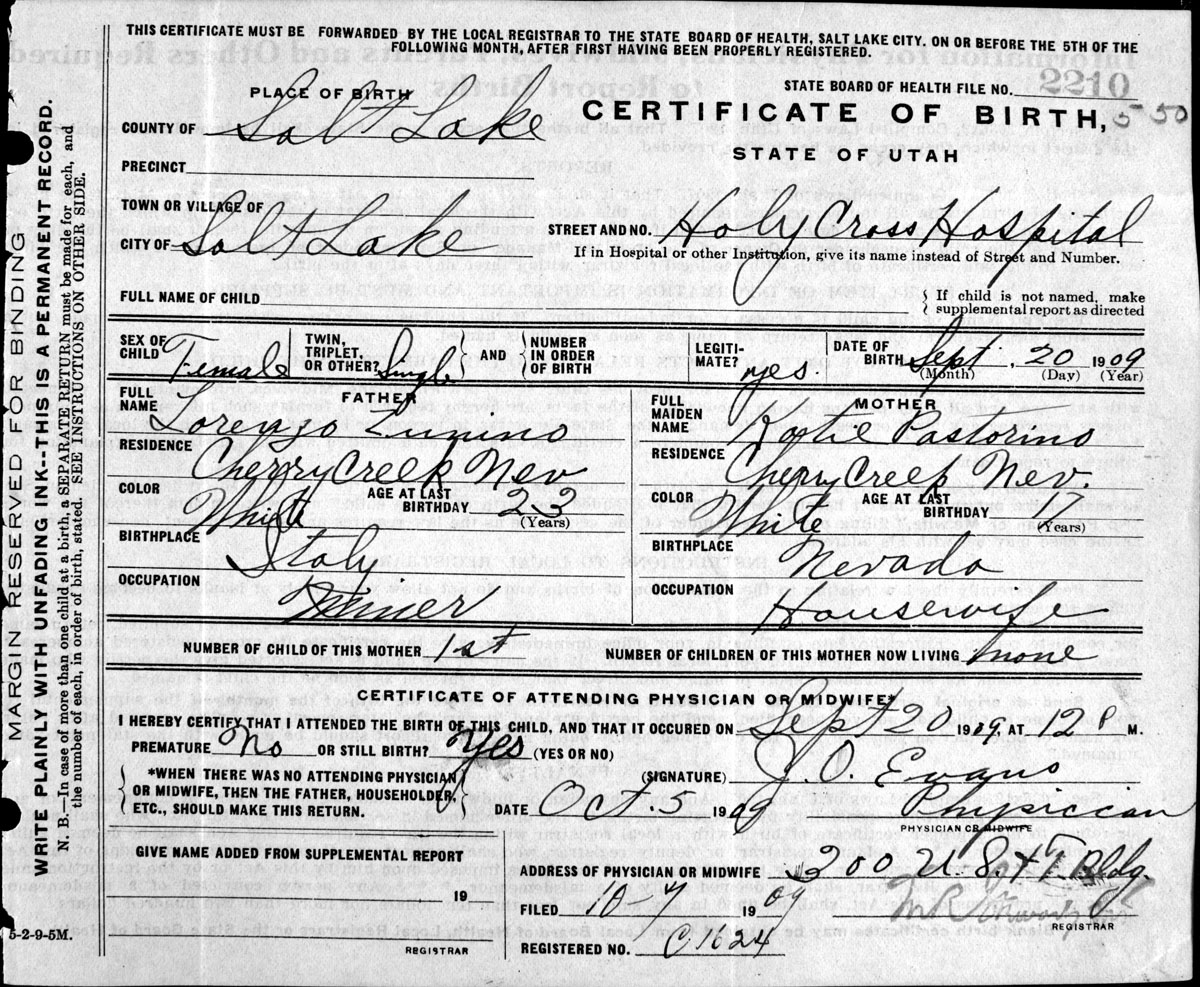 THIS CERTIFICATE MUST BE FORWARDED BY THE LOCAL REGISTRAR TO THE STATE BOARD OF HEALTH, SALT LAKE CITY, ON OR BEFORE THE 5TH OF THE
FOLLOWING MONTH, AFTER FIRST HAVING BEEN PROPERLY REGISTERED.
MARGIN RESERVED FOR BINDING
WRITE PLAINLY WITH UNFADING INK--THIS IS A PERMANENT RECORD.
N. B.—In case of more than one child at a birth, a SEPARATE RETURN must be made for each, and
the number of each, in order of birth, stated. SEE INSTRUCTIONS ON OTHER SIDE.
STATE BOARD OF HEALTH FILE NO. 2210
PLACE OF BIRTH
CERTIFICATE OF BIRTH, 550
COUNTY OF Salt Lake
STATE OF UTAH
PRECINCT
TOWN OR VILLAGE OF
CITY OF Salt Lake
STREET AND NO. Holy Cross Hospital
If in Hospital or other Institution, give its name instead of Street and Number.
FULL NAME OF CHILD
If child is not named, make
supplemental report as directed
SEX OF CHILD Female
TWIN, TRIPLET, OR OTHER? Singl.
AND
NUMBER IN ORDER OF BIRTH
LEGITI-MATE? yes.
DATE OF BIRTH Sept. , 20 1909
(Month) (Day) (Year)
FATHER
FULL NAME Lorenzo Zunino
RESIDENCE Cherry Creek Nev
COLOR White
AGE AT LAST BIRTHDAY 23 (Years)
BIRTHPLACE Italy
OCCUPATION Miner
MOTHER
FULL MAIDEN NAME Katie Pastorino
RESIDENCE Cherry Creek Nev.
COLOR White
AGE AT LAST BIRTHDAY 17 (Years)
BIRTHPLACE Nevada
OCCUPATION Housewife
NUMBER OF CHILD OF THIS MOTHER 1st
NUMBER OF CHILDREN OF THIS MOTHER NOW LIVING none
CERTIFICATE OF ATTENDING PHYSICIAN OR MIDWIFE*
I HEREBY CERTIFY THAT I ATTENDED THE BIRTH OF THIS CHILD, AND THAT IT OCCURED ON Sept 20 1909, AT 12 P M.
PREMATURE No OR STILL BIRTH? Yes (YES OR NO)
*WHEN THERE WAS NO ATTENDING PHYSICIAN
OR MIDWIFE, THEN THE FATHER, HOUSEHOLDER,
ETC., SHOULD MAKE THIS RETURN.
(SIGNATURE) J. O. Evans
DATE Oct. 5 1909 Physician
PHYSICIAN OR MIDWIFE
GIVE NAME ADDED FROM SUPPLEMENTAL REPORT
19
REGISTRAR
ADDRESS OF PHYSICIAN OR MIDWIFE 200 U. S & T. Bldg.
FILED 10/7 1909
REGISTRAR
REGISTERED NO. C 1624
5-2-9-5M.